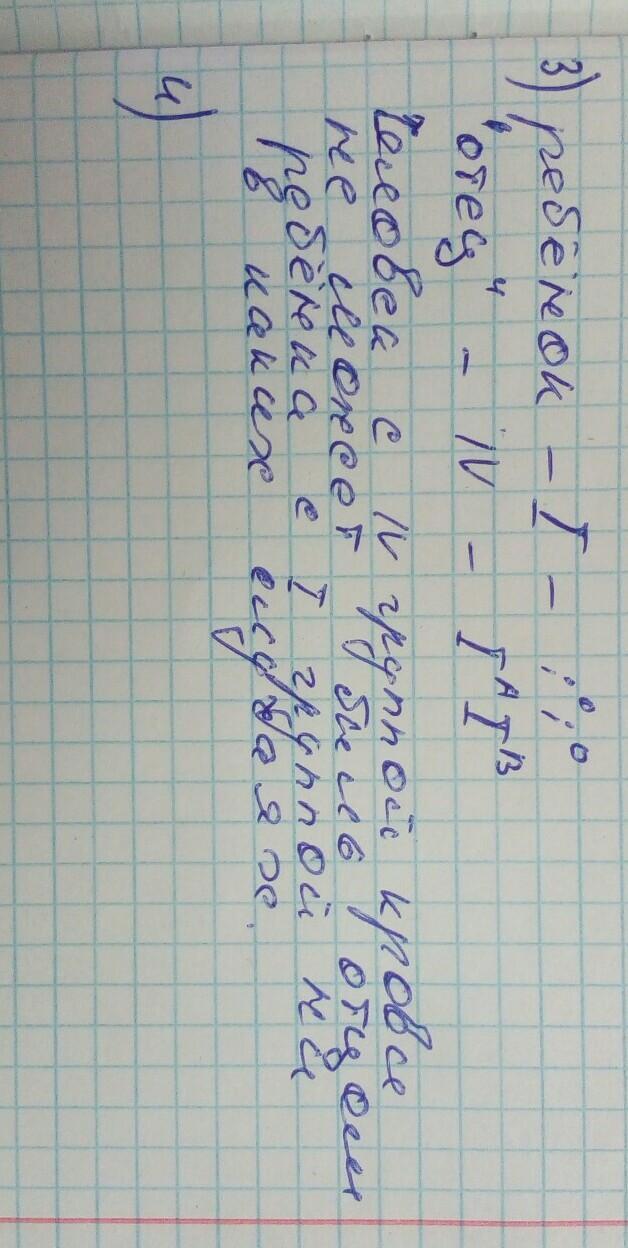 3) ребёнок - I - i⁰i⁰
"отец" - IV - IᴬIᴮ
Человек с IV группой крови
не может быть отцом
ребёнка с I группой ни
в каких случаях.
4)